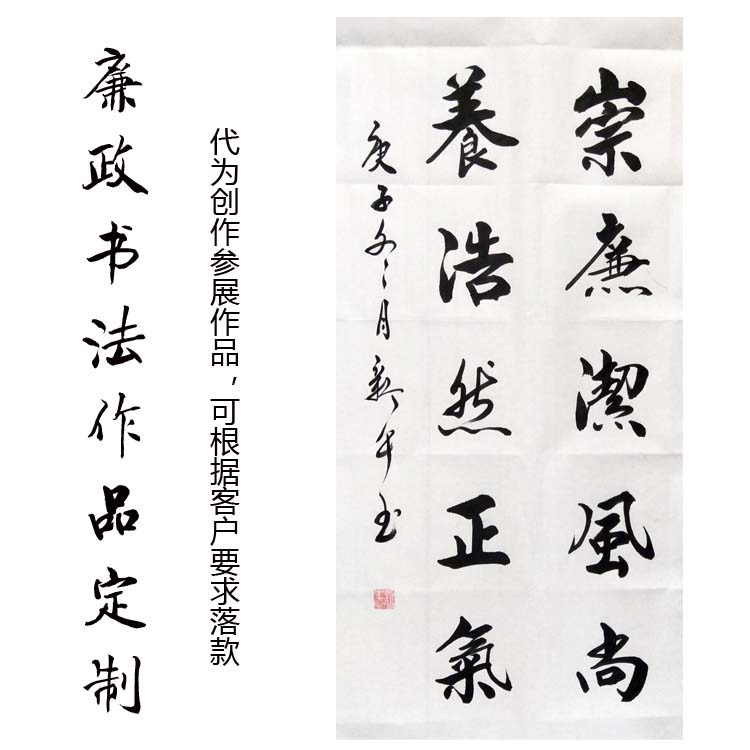 廉政书法作品定制
代为创作参展作品，可根据客户要求落款
崇廉潔風尚
養浩然正氣
庚子冬月